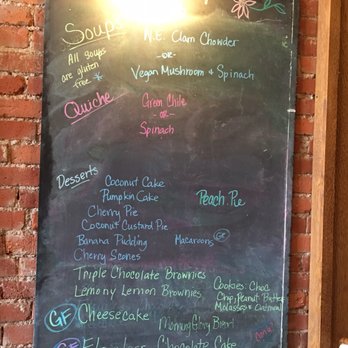 Soups
N.E. Clam Chowder
All soups are gluten free *
-OR-
Vegan Mushroom & Spinach
Quiche
Green Chile
-OR-
Spinach
Desserts
Coconut Cake
Pumpkin Cake
Peach Pie
Cherry Pie
Coconut Custard Pie
Banana Pudding
Macaroons GF
Cherry Scones
Triple Chocolate Brownies
Lemony Lemon Brownies
Cookies: Choc
Chip, Peanut Butter
Molasses & Oatmeal
GF Cheesecake
Morning Glory
GF Flourless Chocolate Cake